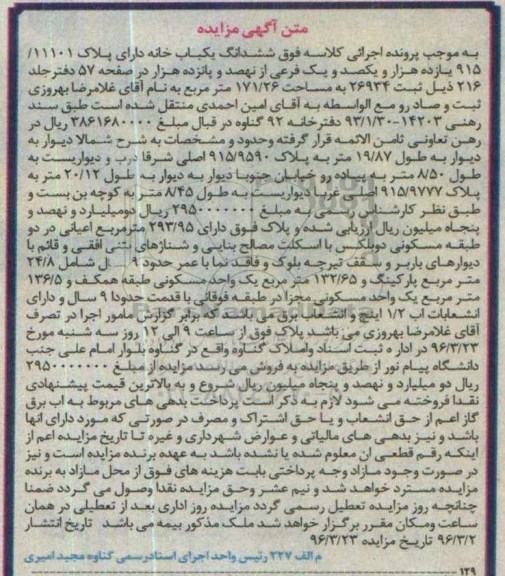 متن آگهی مزایده
به موجب پرونده اجرائی کلاسه فوق ششدانگ یکباب خانه دارای پلاک ۱۱۱۰۱/
۹۱۵ یازده هزار و یکصد و یک فرعی از نهصد و پانزده هزار در صفحه ۵۷ دفتر جلد
۲۱۶ ذیل ثبت ۲۶۹۳۴ به مساحت ۱۷۱/۲۶ متر مربع به نام آقای غلامرضا بهروزی
ثبت و صادر و مع الواسطه به آقای امین احمدی منتقل شده است طبق سند
رهنی ۱۴۲۰۳-۹۳/۱/۳۰ دفترخانه ۹۲ گناوه در قبال مبلغ ۳۸۶۱۶۸۰۰۰۰ ریال در
رهن تعاونی ثامن الائمه قرار گرفته وحدود و مشخصات به شرح شمالا دیوار به
دیوار به طول ۱۹/۸۷ متر به پلاک ۹۱۵/۹۵۹۰ اصلی شرقا درب و دیواریست به
طول ۸/۵۰ متر به پیاده رو خیابان جنوبا دیوار به دیوار به طول ۲۰/۱۲ متر به
پلاک ۹۱۵/۹۷۷۷ اصلی غربا دیواریست به طول ۸/۴۵ متر به کوچه بن بست و
طبق نظر کارشناس رسمی به مبلغ ۲۹۵۰۰۰۰۰۰۰ ریال دومیلیارد و نهصد و
پنجاه میلیون ریال ارزیابی شده و پلاک فوق دارای ۲۹۳/۹۵ مترمربع اعیانی در دو
طبقه مسکونی دوبلکس با اسکلت مصالح بنایی و شناژهای بتنی افقی و قائم با
دیوارهای باربر و سقف تیرچه بلوک و فاقد نما با عمر حدود ۹ سال شامل ۲۴/۸
متر مربع پارکینگ و ۱۳۲/۶۵ متر مربع یک واحد مسکونی طبقه همکف و ۱۳۶/۵
متر مربع یک واحد مسکونی مجزا در طبقه فوقانی با قدمت حدودا ۹ سال و دارای
انشعابات اب ۱/۲ اینچ و انشعاب برق می باشد که برابر گزارش مامور اجرا در تصرف
آقای غلامرضا بهروزی می باشد پلاک فوق از ساعت ۹ الی ۱۲ روز سه شنبه مورخ
۹۶/۳/۲۳ در اداره ثبت اسناد واملاک گناوه واقع در گناوه بلوار امام علی جنب
دانشگاه پیام نور از طریق مزایده به فروش می رسد مزایده از مبلغ ۲۹۵۰۰۰۰۰۰۰
ریال دو میلیارد و نهصد و پنجاه میلیون ریال شروع و به بالاترین قیمت پیشنهادی
نقدا فروخته می شود لازم به ذکر است پرداخت بدهی های مربوط به اب برق
گاز اعم از حق انشعاب و یا حق اشتراک و مصرف در صورتی که مورد دارای انها
باشد و نیز بدهی های مالیاتی و عوارض شهرداری و غیره تا تاریخ مزایده اعم از
اینکه رقم قطعی ان معلوم شده یا نشده باشد به عهده برنده مزایده است و نیز
در صورت وجود مازاد وجه پرداختی بابت هزینه های فوق از محل مازاد به برنده
مزایده مسترد خواهد شد و نیم عشر وحق مزایده نقدا وصول می گردد ضمنا
چنانچه روز مزایده تعطیل رسمی گردد مزایده روز اداری بعد از تعطیلی در همان
ساعت ومکان مقرر برگزار خواهد شد ملک مذکور بیمه می باشد تاریخ انتشار
۹۶/۳/۲ تاریخ مزایده ۹۶/۳/۲۳
م الف ۲۲۷ رئیس واحد اجرای اسناد رسمی گناوه مجید امیری
۱۲۹